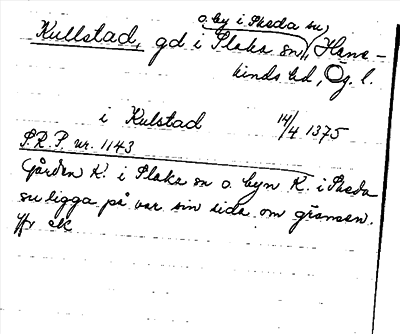 o. by i Skeda sn,
Kullstad, gd i Slaka sn, Hana-
kinds hd, Ög. l.
i Kulstad 14/4 1375
S.R.P. nr. 1143
Gården K. i Slaka sn o. byn K. i Skeda
sn ligga på var sin sida om gränsen.
Jfr ek